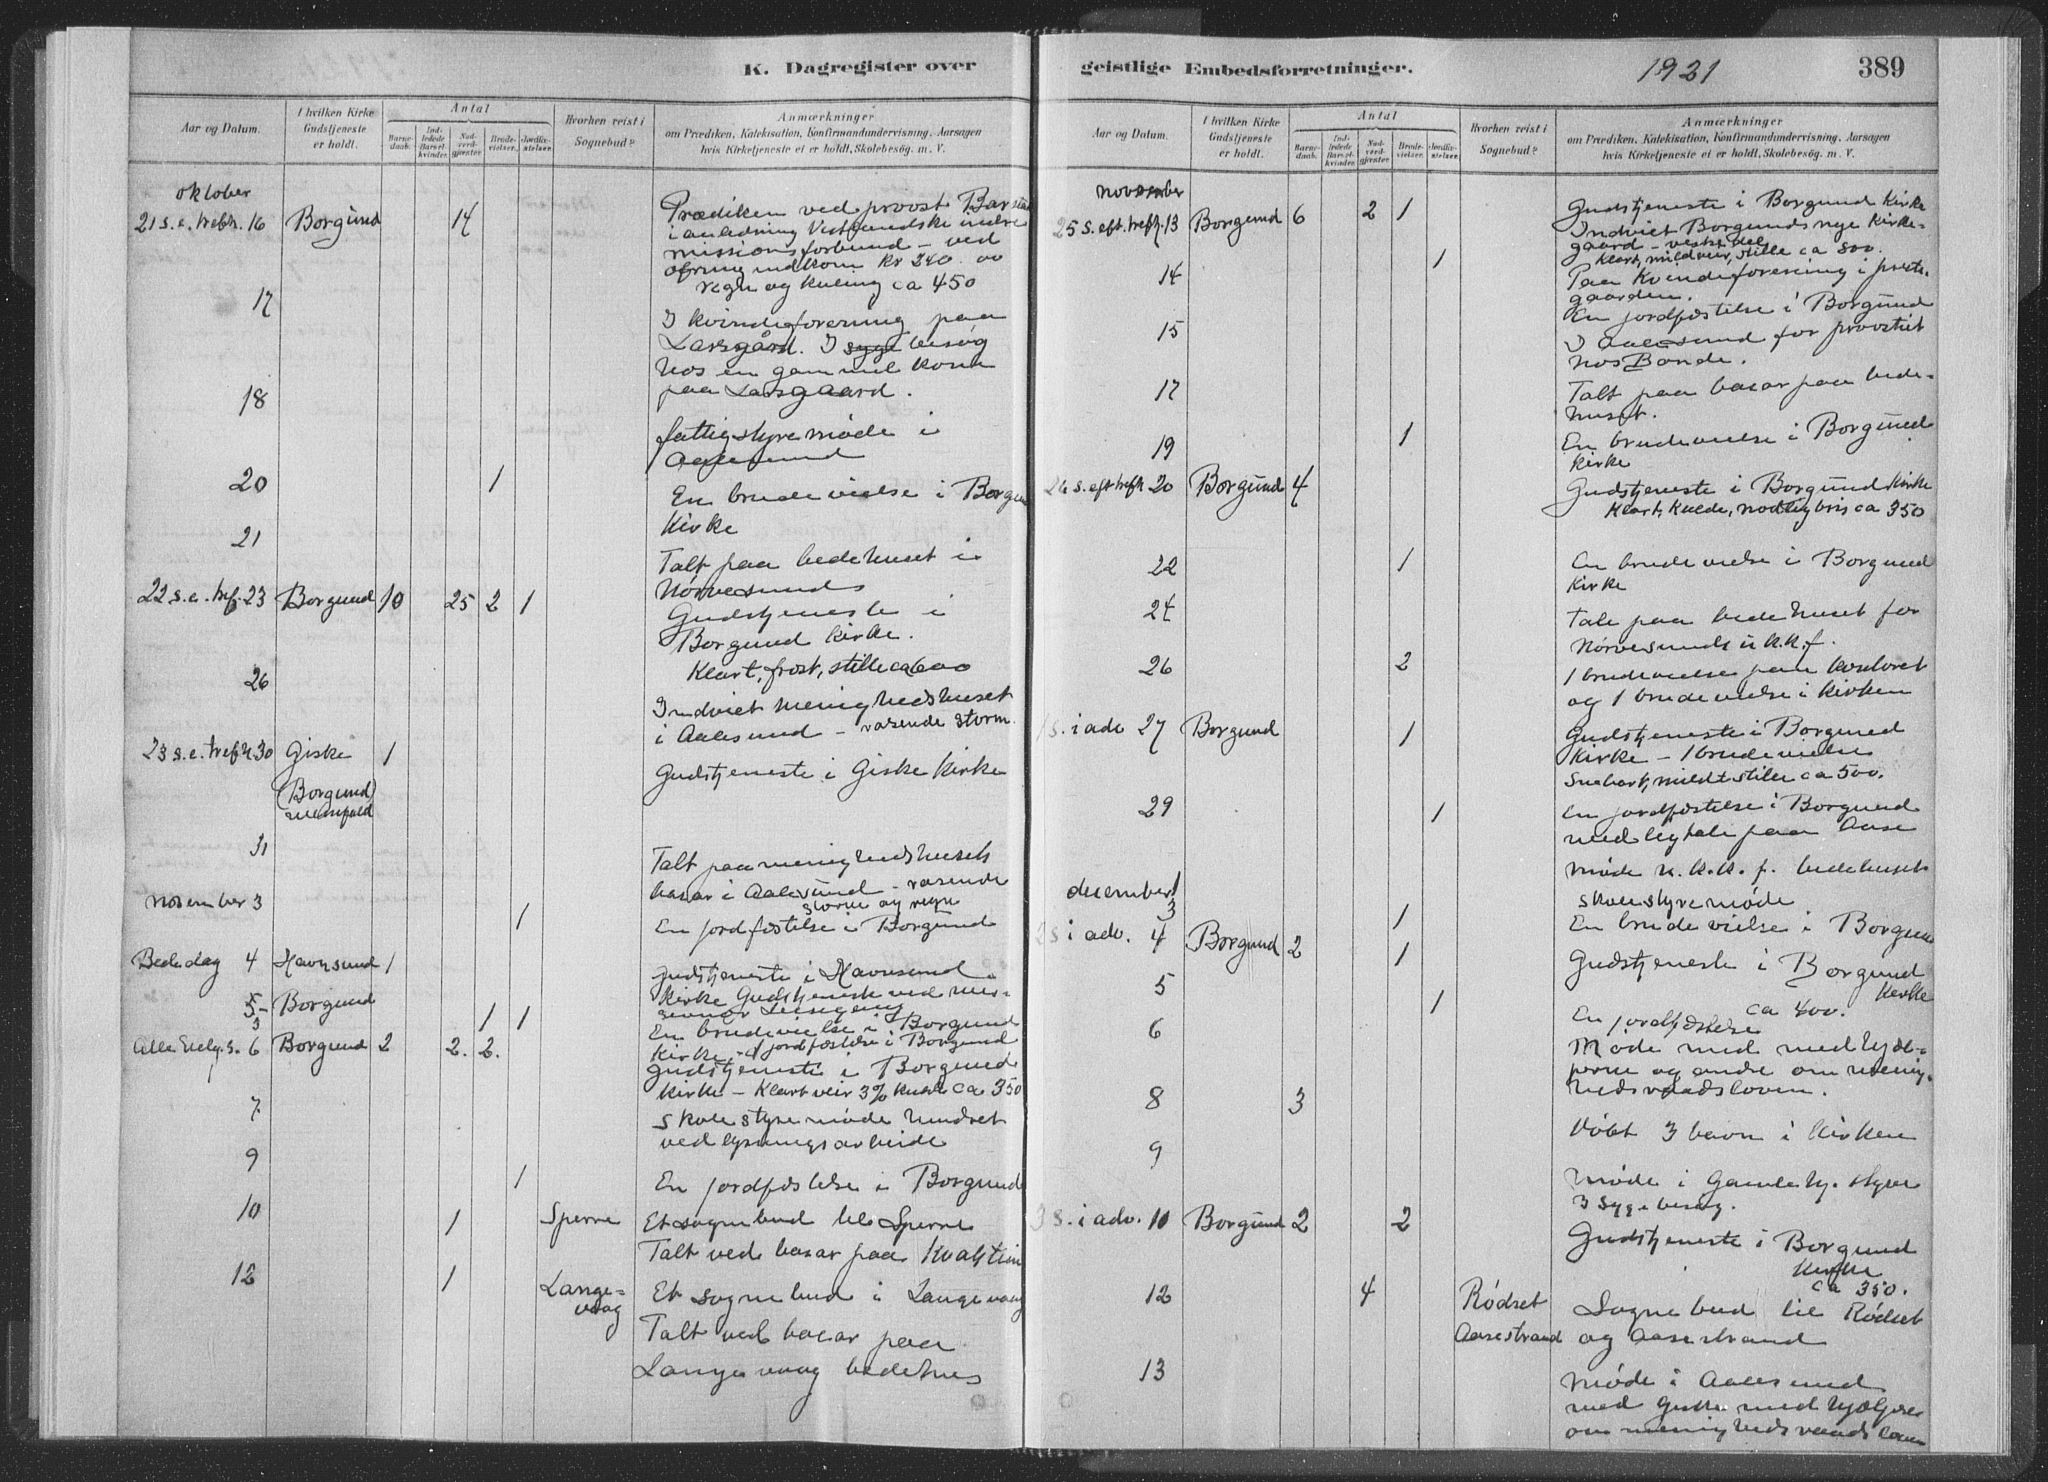 K. Dagregister over
Aar og Datum.
I hvilken Kirke Gudstjeneste er holdt.
Antal
Barnedaab.
Indledede Barselkvinder.
Nadverdgjester.
Brudevielser.
Jordfæstelser.
Hvorhen reist i Sognebud?
Anmærkninger
om Prædiken, Katekisation, Konfirmandundervisning, Aarsagen
hvis Kirketjeneste ei er holdt, Skolebesøg. m. V.
oktober
21 s. e. trefh. 16 Borgund 14 Prædiken ved provst
i anledning Vestlandske indre
missionsforbund – ved
ofring indkom kr 240.00
regn og kuling ca 450
17 I kvindeforening paa
Larsgård. I syge besøg
hos en gammel kone
paa Larsgaard.
18 fattigstyremøde i
Aalesund
20 1 En brudevielse i Borgund
Kirke
21 Talt paa bedehuset i
Nørvesund
22 s. e. tref. 23 Borgund 10 25 2 1 Gudstjeneste i
Borgund kirke.
Klart, frost, stille ca 600
26 Indviet menighedshuset
i Aalesund – rasende storm.
23 s. e. trefh. 30 Giske 1 Gudstjeneste i Giske Kirke
(Borgund)
31 Talt paa menighedshusets
basar i Aalesund – rasende
storm og regn
november 3 1 En jordfæstelse i Borgund
Bededag 4 Havnsund 1 Gudstjeneste i Havnsund
kirke Gudstjeneste ved
5 Borgund 1 1 En brudevielse i Borgund
Kirke, – 1 jordfæstelse i Borgund
Alle Helg. s. 6 Borgund 2 2. 2. Gudstjeneste i Borgund
kirke – Klart veir 3% kulde ca 350
7 Skolestyremøde
ved lysningsarbeide
9 1 En jordfæstelse i Borgund
10 1 Sperre Et sognebud til Sperre
Talt ved basar paa
12 1 Lange-
vaag Et sognebud i Langevaag
Talt ved basar paa
Langevaag bedehus
geistlige Embedsforretninger.
1921
389
Aar og Datum.
I hvilken Kirke Gudstjeneste er holdt.
Antal
Barnedaab.
Indledede Barselkvinder.
Nadverdgjester.
Brudevielser.
Jordfæstelser.
Hvorhen reist i Sognebud?
Anmærkninger
om Prædiken, Katekisation, Konfirmandundervisning, Aarsagen
hvis Kirketjeneste ei er holdt, Skolebesøg. m. V.
november
25 s. eft. trefh. 13 Borgund 6 2 1 Gudstjeneste i Borgund Kirke
Indviet Borgunds nye Kirke-
gaard – vestre del
Klart, mildveir, stille ca 800.
14 1 Paa Kvindeforening i preste-
gaarden.
En jordfæstelse i Borgund
15 I Aalesund for provstiet
hos Bonde.
17 Talt paa basar paa bede-
huset.
19 1 En brudevielse i Borgund
kirke
26 s. eft trefh 20 Borgund 4 Gudstjeneste i Borgund Kirke
Klart, Kulde, nordlig bris ca 350
22 1 En brudevielse i Borgund
Kirke
24 Tale paa bedehuset for
Nørvesunds u.k.k.f.
26 2 1 brudevielse paa kontoret
og 1 brudevielse i kirken
1 s. i adv 27 Borgund 1 Gudstjeneste i Borgund
Kirke – 1 brudevielse
Snebart, mildt stille ca 500.
29 1 En jordfæstelse i Borgund
med ligtale paa Aase
desember 1 møde u.k.k.f. bedehuset
skolestyremøde
3 1 En brudevielse i Borgund
2 s i adv. 4 Borgund 2 1 Gudstjeneste i Borgund
Kirke
ca 400.
5 1 En jordfæstelse
6 Møde med medhjæl-
perne og andre om menig-
hedsraadsloven.
8 3 Døbt 3 barn i Kirken
9 Møde i Gamlehj. styre
3 sygebesøg.
3 s. i adv. 11 Borgund 2 2 Gudstjeneste i Borgund
Kirke
ca 350.
12 4 Rødset
Aasestrand Sognebud til Rødset
og Aasestrand
13 Møde i Aalesund
med Giske medhjælpere
om menighedsraadsloven